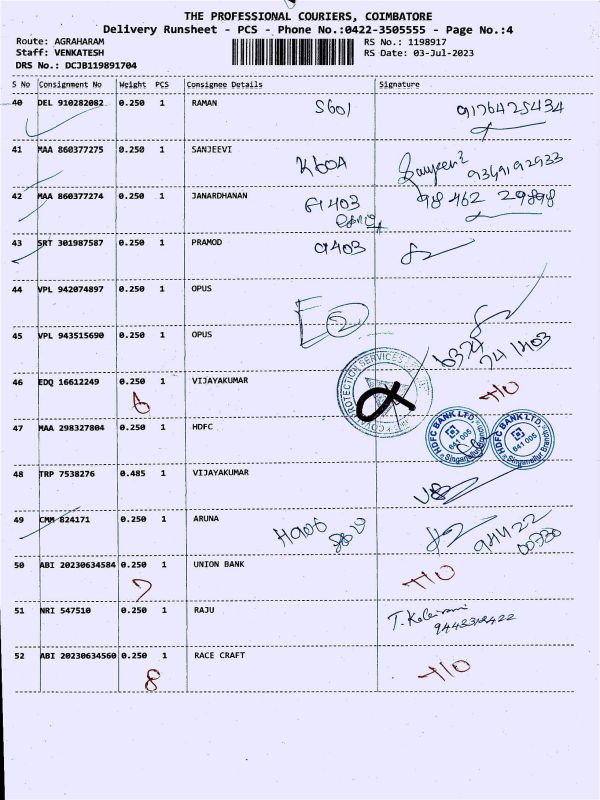 THE PROFESSIONAL COURIERS, COIMBATORE
Delivery Runsheet - PCS - Phone No.:0422-3505555 - Page No.:4
Route: AGRAHARAM
RS No.: 1198917
Staff: VENKATESH
RS Date: 03-Jul-2023
DRS No.: DCJB119891704
S No Consignment No Weight PCS Consignee Details Signature
40 DEL 910282082 0.250 1 RAMAN S601 9176425434
41 MAA 860377275 0.250 1 SANJEEVI K60A
42 MAA 860377274 0.250 1 JANARDHANAN G1403 98462 29898
43 SRT 301987587 0.250 1 PRAMOD G403
44 VPL 942074897 0.250 1 OPUS
E2
45 VPL 943515690 0.250 1 OPUS
46 EDQ 16612249 0.250 1 VIJAYAKUMAR H/O
6
47 MAA 298327804 0.250 1 HDFC
HDFC BANK LTD. 641 005 Singanallur Branch
HDFC BANK LTD. 641 005 Singanallur Branch
48 TRP 7538276 0.485 1 VIJAYAKUMAR
49 CMM 824171 0.250 1 ARUNA H906
50 ABI 20230634584 0.250 1 UNION BANK H/O
7
51 NRI 547510 0.250 1 RAJU
52 ABI 20230634560 0.250 1 RACE CRAFT H/O
8